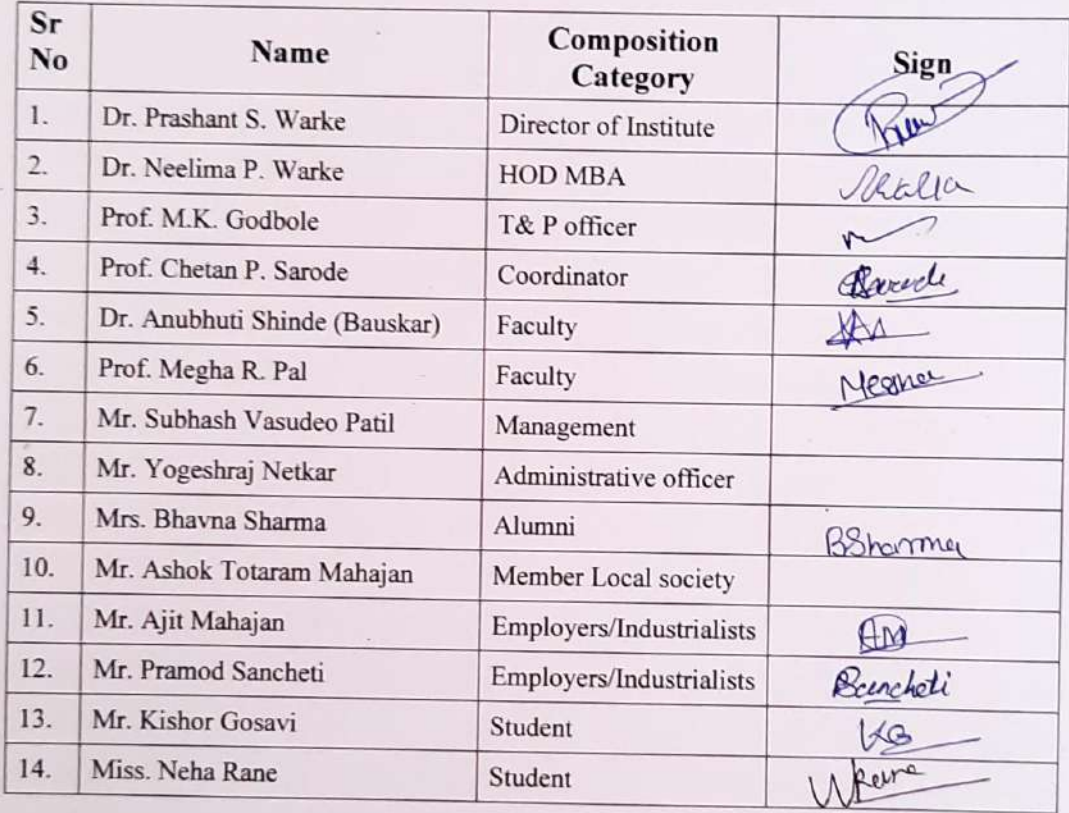 Sr No Name Composition Category Sign
1. Dr. Prashant S. Warke Director of Institute
2. Dr. Neelima P. Warke HOD MBA
3. Prof. M.K. Godbole T& P officer
4. Prof. Chetan P. Sarode Coordinator
5. Dr. Anubhuti Shinde (Bauskar) Faculty
6. Prof. Megha R. Pal Faculty
7. Mr. Subhash Vasudeo Patil Management
8. Mr. Yogeshraj Netkar Administrative officer
9. Mrs. Bhavna Sharma Alumni BSharma
10. Mr. Ashok Totaram Mahajan Member Local society
11. Mr. Ajit Mahajan Employers/Industrialists AM
12. Mr. Pramod Sancheti Employers/Industrialists Sancheti
13. Mr. Kishor Gosavi Student KG
14. Miss. Neha Rane Student